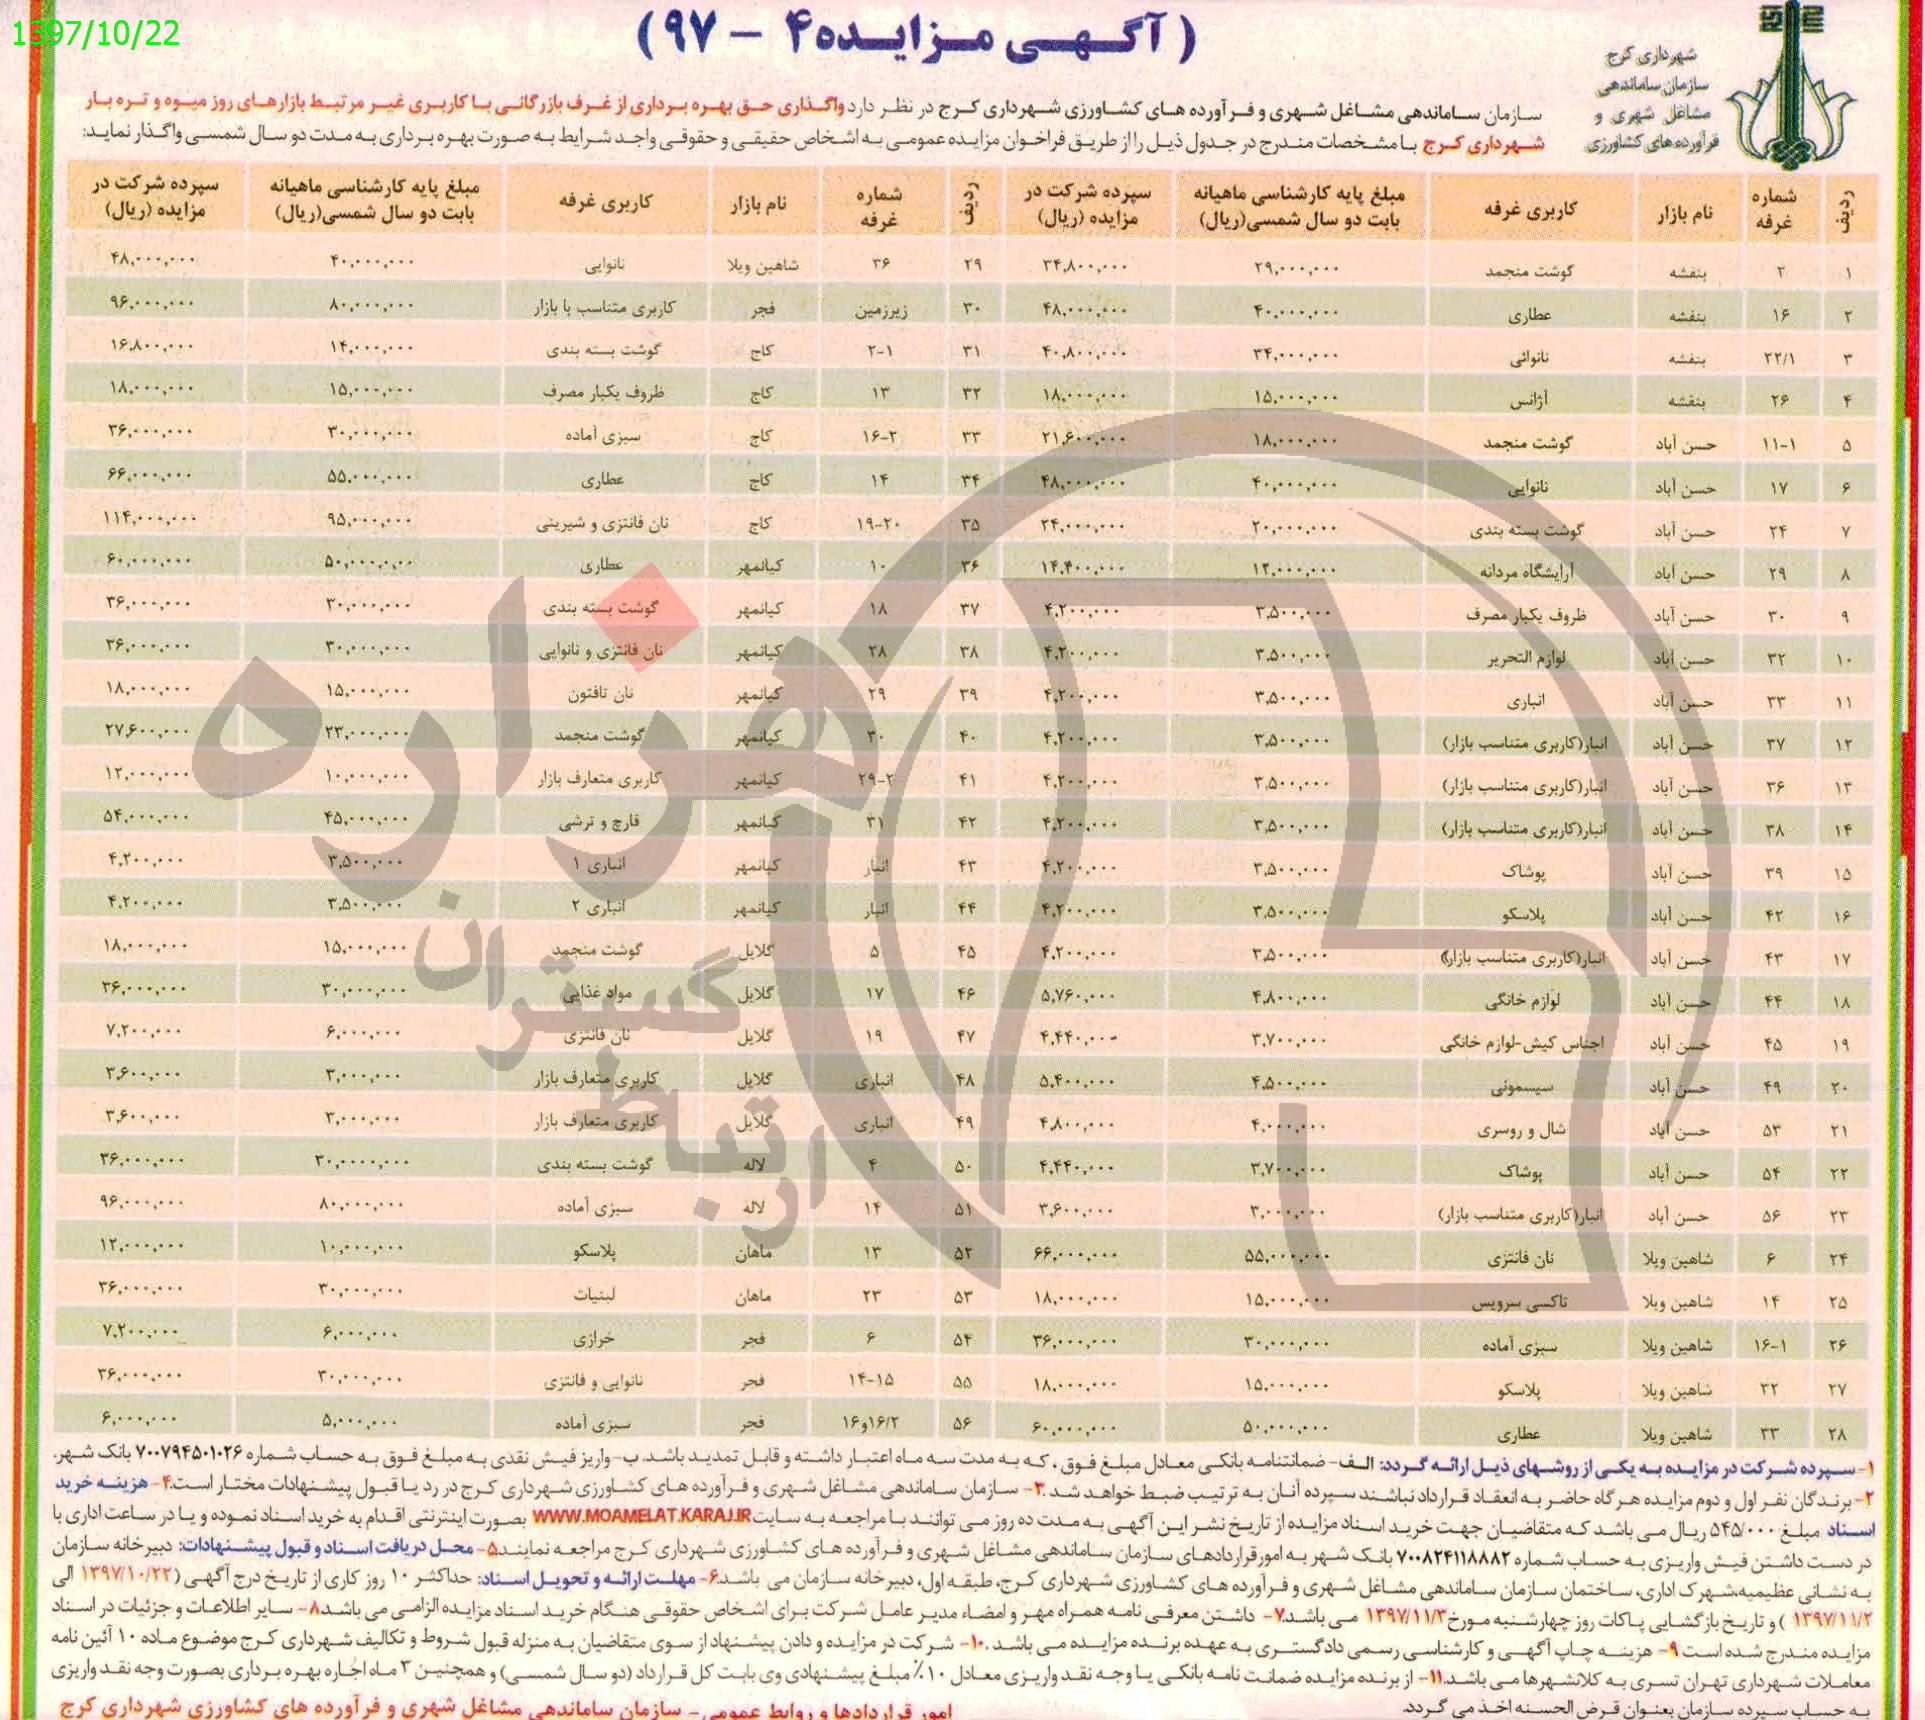 1397/10/22
( آگهی مزایده ۴ – ۹۷ )
شهرداری کرج
سازمان ساماندهی
مشاغل شهری و
فرآورده‌های کشاورزی
سازمان ساماندهی مشاغل شهری و فرآورده های کشاورزی شهرداری کرج در نظر دارد واگذاری حق بهره برداری از غرف بازرگانی با کاربری غیر مرتبط بازارهای روز میوه و تره بار
شهرداری کرج با مشخصات مندرج در جدول ذیل را از طریق فراخوان مزایده عمومی به اشخاص حقیقی و حقوقی واجد شرایط به صورت بهره برداری به مدت دو سال شمسی واگذار نماید:
ردیف شماره غرفه نام بازار کاربری غرفه مبلغ پایه کارشناسی ماهیانه بابت دو سال شمسی(ریال) سپرده شرکت در مزایده (ریال) ردیف شماره غرفه نام بازار کاربری غرفه مبلغ پایه کارشناسی ماهیانه بابت دو سال شمسی(ریال) سپرده شرکت در مزایده (ریال)
۱ ۲ بنفشه گوشت منجمد ۲۹,۰۰۰,۰۰۰ ۳۴,۸۰۰,۰۰۰ ۲۹ ۳۶ شاهین ویلا نانوایی ۴۰,۰۰۰,۰۰۰ ۴۸,۰۰۰,۰۰۰
۲ ۱۶ بنفشه عطاری ۴۰,۰۰۰,۰۰۰ ۴۸,۰۰۰,۰۰۰ ۳۰ زیرزمین فجر کاربری متناسب با بازار ۸۰,۰۰۰,۰۰۰ ۹۶,۰۰۰,۰۰۰
۳ ۲۲/۱ بنفشه نانوائی ۳۴,۰۰۰,۰۰۰ ۴۰,۸۰۰,۰۰۰ ۳۱ ۲-۱ کاج گوشت بسته بندی ۱۴,۰۰۰,۰۰۰ ۱۶,۸۰۰,۰۰۰
۴ ۲۶ بنفشه آژانس ۱۵,۰۰۰,۰۰۰ ۱۸,۰۰۰,۰۰۰ ۳۲ ۱۳ کاج ظروف یکبار مصرف ۱۵,۰۰۰,۰۰۰ ۱۸,۰۰۰,۰۰۰
۵ ۱۱-۱ حسن آباد گوشت منجمد ۱۸,۰۰۰,۰۰۰ ۲۱,۶۰۰,۰۰۰ ۳۳ ۱۶-۲ کاج سبزی آماده ۳۰,۰۰۰,۰۰۰ ۳۶,۰۰۰,۰۰۰
۶ ۱۷ حسن آباد نانوایی ۴۰,۰۰۰,۰۰۰ ۴۸,۰۰۰,۰۰۰ ۳۴ ۱۴ کاج عطاری ۵۵,۰۰۰,۰۰۰ ۶۶,۰۰۰,۰۰۰
۷ ۲۴ حسن آباد گوشت بسته بندی ۲۰,۰۰۰,۰۰۰ ۲۴,۰۰۰,۰۰۰ ۳۵ ۱۹-۲۰ کاج نان فانتزی و شیرینی ۹۵,۰۰۰,۰۰۰ ۱۱۴,۰۰۰,۰۰۰
۸ ۲۹ حسن آباد آرایشگاه مردانه ۱۲,۰۰۰,۰۰۰ ۱۴,۴۰۰,۰۰۰ ۳۶ ۱۰ کیانمهر عطاری ۵۰,۰۰۰,۰۰۰ ۶۰,۰۰۰,۰۰۰
۹ ۳۰ حسن آباد ظروف یکبار مصرف ۳,۵۰۰,۰۰۰ ۴,۲۰۰,۰۰۰ ۳۷ ۱۸ کیانمهر گوشت بسته بندی ۳۰,۰۰۰,۰۰۰ ۳۶,۰۰۰,۰۰۰
۱۰ ۳۲ حسن آباد لوازم التحریر ۳,۵۰۰,۰۰۰ ۴,۲۰۰,۰۰۰ ۳۸ ۲۸ کیانمهر نان فانتزی و نانوایی ۳۰,۰۰۰,۰۰۰ ۳۶,۰۰۰,۰۰۰
۱۱ ۳۳ حسن آباد انباری ۳,۵۰۰,۰۰۰ ۴,۲۰۰,۰۰۰ ۳۹ ۲۹ کیانمهر نان تافتون ۱۵,۰۰۰,۰۰۰ ۱۸,۰۰۰,۰۰۰
۱۲ ۳۷ حسن آباد انبار(کاربری متناسب بازار) ۳,۵۰۰,۰۰۰ ۴,۲۰۰,۰۰۰ ۴۰ ۳۰ کیانمهر گوشت منجمد ۲۳,۰۰۰,۰۰۰ ۲۷,۶۰۰,۰۰۰
۱۳ ۳۶ حسن آباد انبار(کاربری متناسب بازار) ۳,۵۰۰,۰۰۰ ۴,۲۰۰,۰۰۰ ۴۱ ۲۹-۲ کیانمهر کاربری متعارف بازار ۱۰,۰۰۰,۰۰۰ ۱۲,۰۰۰,۰۰۰
۱۴ ۳۸ حسن آباد انبار(کاربری متناسب بازار) ۳,۵۰۰,۰۰۰ ۴,۲۰۰,۰۰۰ ۴۲ ۳۱ کیانمهر قارچ و ترشی ۴۵,۰۰۰,۰۰۰ ۵۴,۰۰۰,۰۰۰
۱۵ ۳۹ حسن آباد پوشاک ۳,۵۰۰,۰۰۰ ۴,۲۰۰,۰۰۰ ۴۳ انبار کیانمهر انباری ۱ ۳,۵۰۰,۰۰۰ ۴,۲۰۰,۰۰۰
۱۶ ۴۲ حسن آباد پلاسکو ۳,۵۰۰,۰۰۰ ۴,۲۰۰,۰۰۰ ۴۴ انبار کیانمهر انباری ۲ ۳,۵۰۰,۰۰۰ ۴,۲۰۰,۰۰۰
۱۷ ۴۳ حسن آباد انبار(کاربری متناسب بازار) ۳,۵۰۰,۰۰۰ ۴,۲۰۰,۰۰۰ ۴۵ ۵ گلایل گوشت منجمد ۱۵,۰۰۰,۰۰۰ ۱۸,۰۰۰,۰۰۰
۱۸ ۴۴ حسن آباد لوازم خانگی ۴,۸۰۰,۰۰۰ ۵,۷۶۰,۰۰۰ ۴۶ ۱۷ گلایل مواد غذایی ۳۰,۰۰۰,۰۰۰ ۳۶,۰۰۰,۰۰۰
۱۹ ۴۵ حسن آباد اجناس کیش-لوازم خانگی ۳,۷۰۰,۰۰۰ ۴,۴۴۰,۰۰۰ ۴۷ ۱۹ گلایل نان فانتزی ۶,۰۰۰,۰۰۰ ۷,۲۰۰,۰۰۰
۲۰ ۴۹ حسن آباد سیسمونی ۴,۵۰۰,۰۰۰ ۵,۴۰۰,۰۰۰ ۴۸ انباری گلایل کاربری متعارف بازار ۳,۰۰۰,۰۰۰ ۳,۶۰۰,۰۰۰
۲۱ ۵۳ حسن آباد شال و روسری ۴,۰۰۰,۰۰۰ ۴,۸۰۰,۰۰۰ ۴۹ انباری گلایل کاربری متعارف بازار ۳,۰۰۰,۰۰۰ ۳,۶۰۰,۰۰۰
۲۲ ۵۴ حسن آباد پوشاک ۳,۷۰۰,۰۰۰ ۴,۴۴۰,۰۰۰ ۵۰ ۴ لاله گوشت بسته بندی ۳۰,۰۰۰۰,۰۰۰ ۳۶,۰۰۰,۰۰۰
۲۳ ۵۶ حسن آباد انبار(کاربری متناسب بازار) ۳,۰۰۰,۰۰۰ ۳,۶۰۰,۰۰۰ ۵۱ ۱۴ لاله سبزی آماده ۸۰,۰۰۰,۰۰۰ ۹۶,۰۰۰,۰۰۰
۲۴ ۶ شاهین ویلا نان فانتزی ۵۵,۰۰۰,۰۰۰ ۶۶,۰۰۰,۰۰۰ ۵۲ ۱۳ ماهان پلاسکو ۱۰,۰۰۰,۰۰۰ ۱۲,۰۰۰,۰۰۰
۲۵ ۱۴ شاهین ویلا تاکسی سرویس ۱۵,۰۰۰,۰۰۰ ۱۸,۰۰۰,۰۰۰ ۵۳ ۲۳ ماهان لبنیات ۳۰,۰۰۰,۰۰۰ ۳۶,۰۰۰,۰۰۰
۲۶ ۱۶-۱ شاهین ویلا سبزی آماده ۳۰,۰۰۰,۰۰۰ ۳۶,۰۰۰,۰۰۰ ۵۴ ۶ فجر خرازی ۶,۰۰۰,۰۰۰ ۷,۲۰۰,۰۰۰
۲۷ ۳۲ شاهین ویلا پلاسکو ۱۵,۰۰۰,۰۰۰ ۱۸,۰۰۰,۰۰۰ ۵۵ ۱۴-۱۵ فجر نانوایی و فانتزی ۳۰,۰۰۰,۰۰۰ ۳۶,۰۰۰,۰۰۰
۲۸ ۳۳ شاهین ویلا عطاری ۵۰,۰۰۰,۰۰۰ ۶۰,۰۰۰,۰۰۰ ۵۶ ۱۶/۲و۱۶ فجر سبزی آماده ۵,۰۰۰,۰۰۰ ۶,۰۰۰,۰۰۰
هزاره
ارتباط گستران
۱- سپرده شرکت در مزایده به یکی از روشهای ذیل ارائه گردد: الف- ضمانتنامه بانکی معادل مبلغ فوق، که به مدت سه ماه اعتبار داشته و قابل تمدید باشد. ب-واریز فیش نقدی به مبلغ فوق به حساب شماره ۷۰۰۷۹۴۵۰۱۰۲۶ بانک شهر.
۲- برندگان نفر اول و دوم مزایده هرگاه حاضر به انعقاد قرارداد نباشند سپرده آنان به ترتیب ضبط خواهد شد. ۳- سازمان ساماندهی مشاغل شهری و فرآورده های کشاورزی شهرداری کرج در رد یا قبول پیشنهادات مختار است. ۴- هزینه خرید
اسناد مبلغ ۵۴۵/۰۰۰ ریال می باشد که متقاضیان جهت خرید اسناد مزایده از تاریخ نشر این آگهی به مدت ده روز می توانند با مراجعه به سایت WWW.MOAMELAT.KARAJ.IR بصورت اینترنتی اقدام به خرید اسناد نموده و یا در ساعت اداری با
در دست داشتن فیش واریزی به حساب شماره ۷۰۰۸۲۴۱۱۸۸۸۲ بانک شهر به امور قراردادهای سازمان ساماندهی مشاغل شهری و فرآورده های کشاورزی شهرداری کرج مراجعه نمایند. ۵- محل دریافت اسناد و قبول پیشنهادات: دبیرخانه سازمان
به نشانی عظیمیه، شهرک اداری، ساختمان سازمان ساماندهی مشاغل شهری و فرآورده های کشاورزی شهرداری کرج، طبقه اول، دبیرخانه سازمان می باشد. ۶- مهلت ارائه و تحویل اسناد: حداکثر ۱۰ روز کاری از تاریخ درج آگهی (۱۳۹۷/۱۰/۲۲ الی
۱۳۹۷/۱۱/۲ ) و تاریخ بازگشایی پاکات روز چهارشنبه مورخ ۱۳۹۷/۱۱/۳ می باشد. ۷- داشتن معرفی نامه همراه مهر و امضاء مدیر عامل شرکت برای اشخاص حقوقی هنگام خرید اسناد مزایده الزامی می باشد. ۸- سایر اطلاعات و جزئیات در اسناد
مزایده مندرج شده است ۹- هزینه چاپ آگهی و کارشناسی رسمی دادگستری به عهده برنده مزایده می باشد. ۱۰- شرکت در مزایده و دادن پیشنهاد از سوی متقاضیان به منزله قبول شروط و تکالیف شهرداری کرج موضوع ماده ۱۰ آئین نامه
معاملات شهرداری تهران تسری به کلانشهرها می باشد. ۱۱- از برنده مزایده ضمانت نامه بانکی یا وجه نقد واریزی معادل ۱۰٪ مبلغ پیشنهادی وی بابت کل قرارداد (دو سال شمسی) و همچنین ۳ ماه اجاره بهره برداری بصورت وجه نقد واریزی
به حساب سپرده سازمان بعنوان قرض الحسنه اخذ می گردد.
امور قراردادها و روابط عمومی - سازمان ساماندهی مشاغل شهری و فرآورده های کشاورزی شهرداری کرج